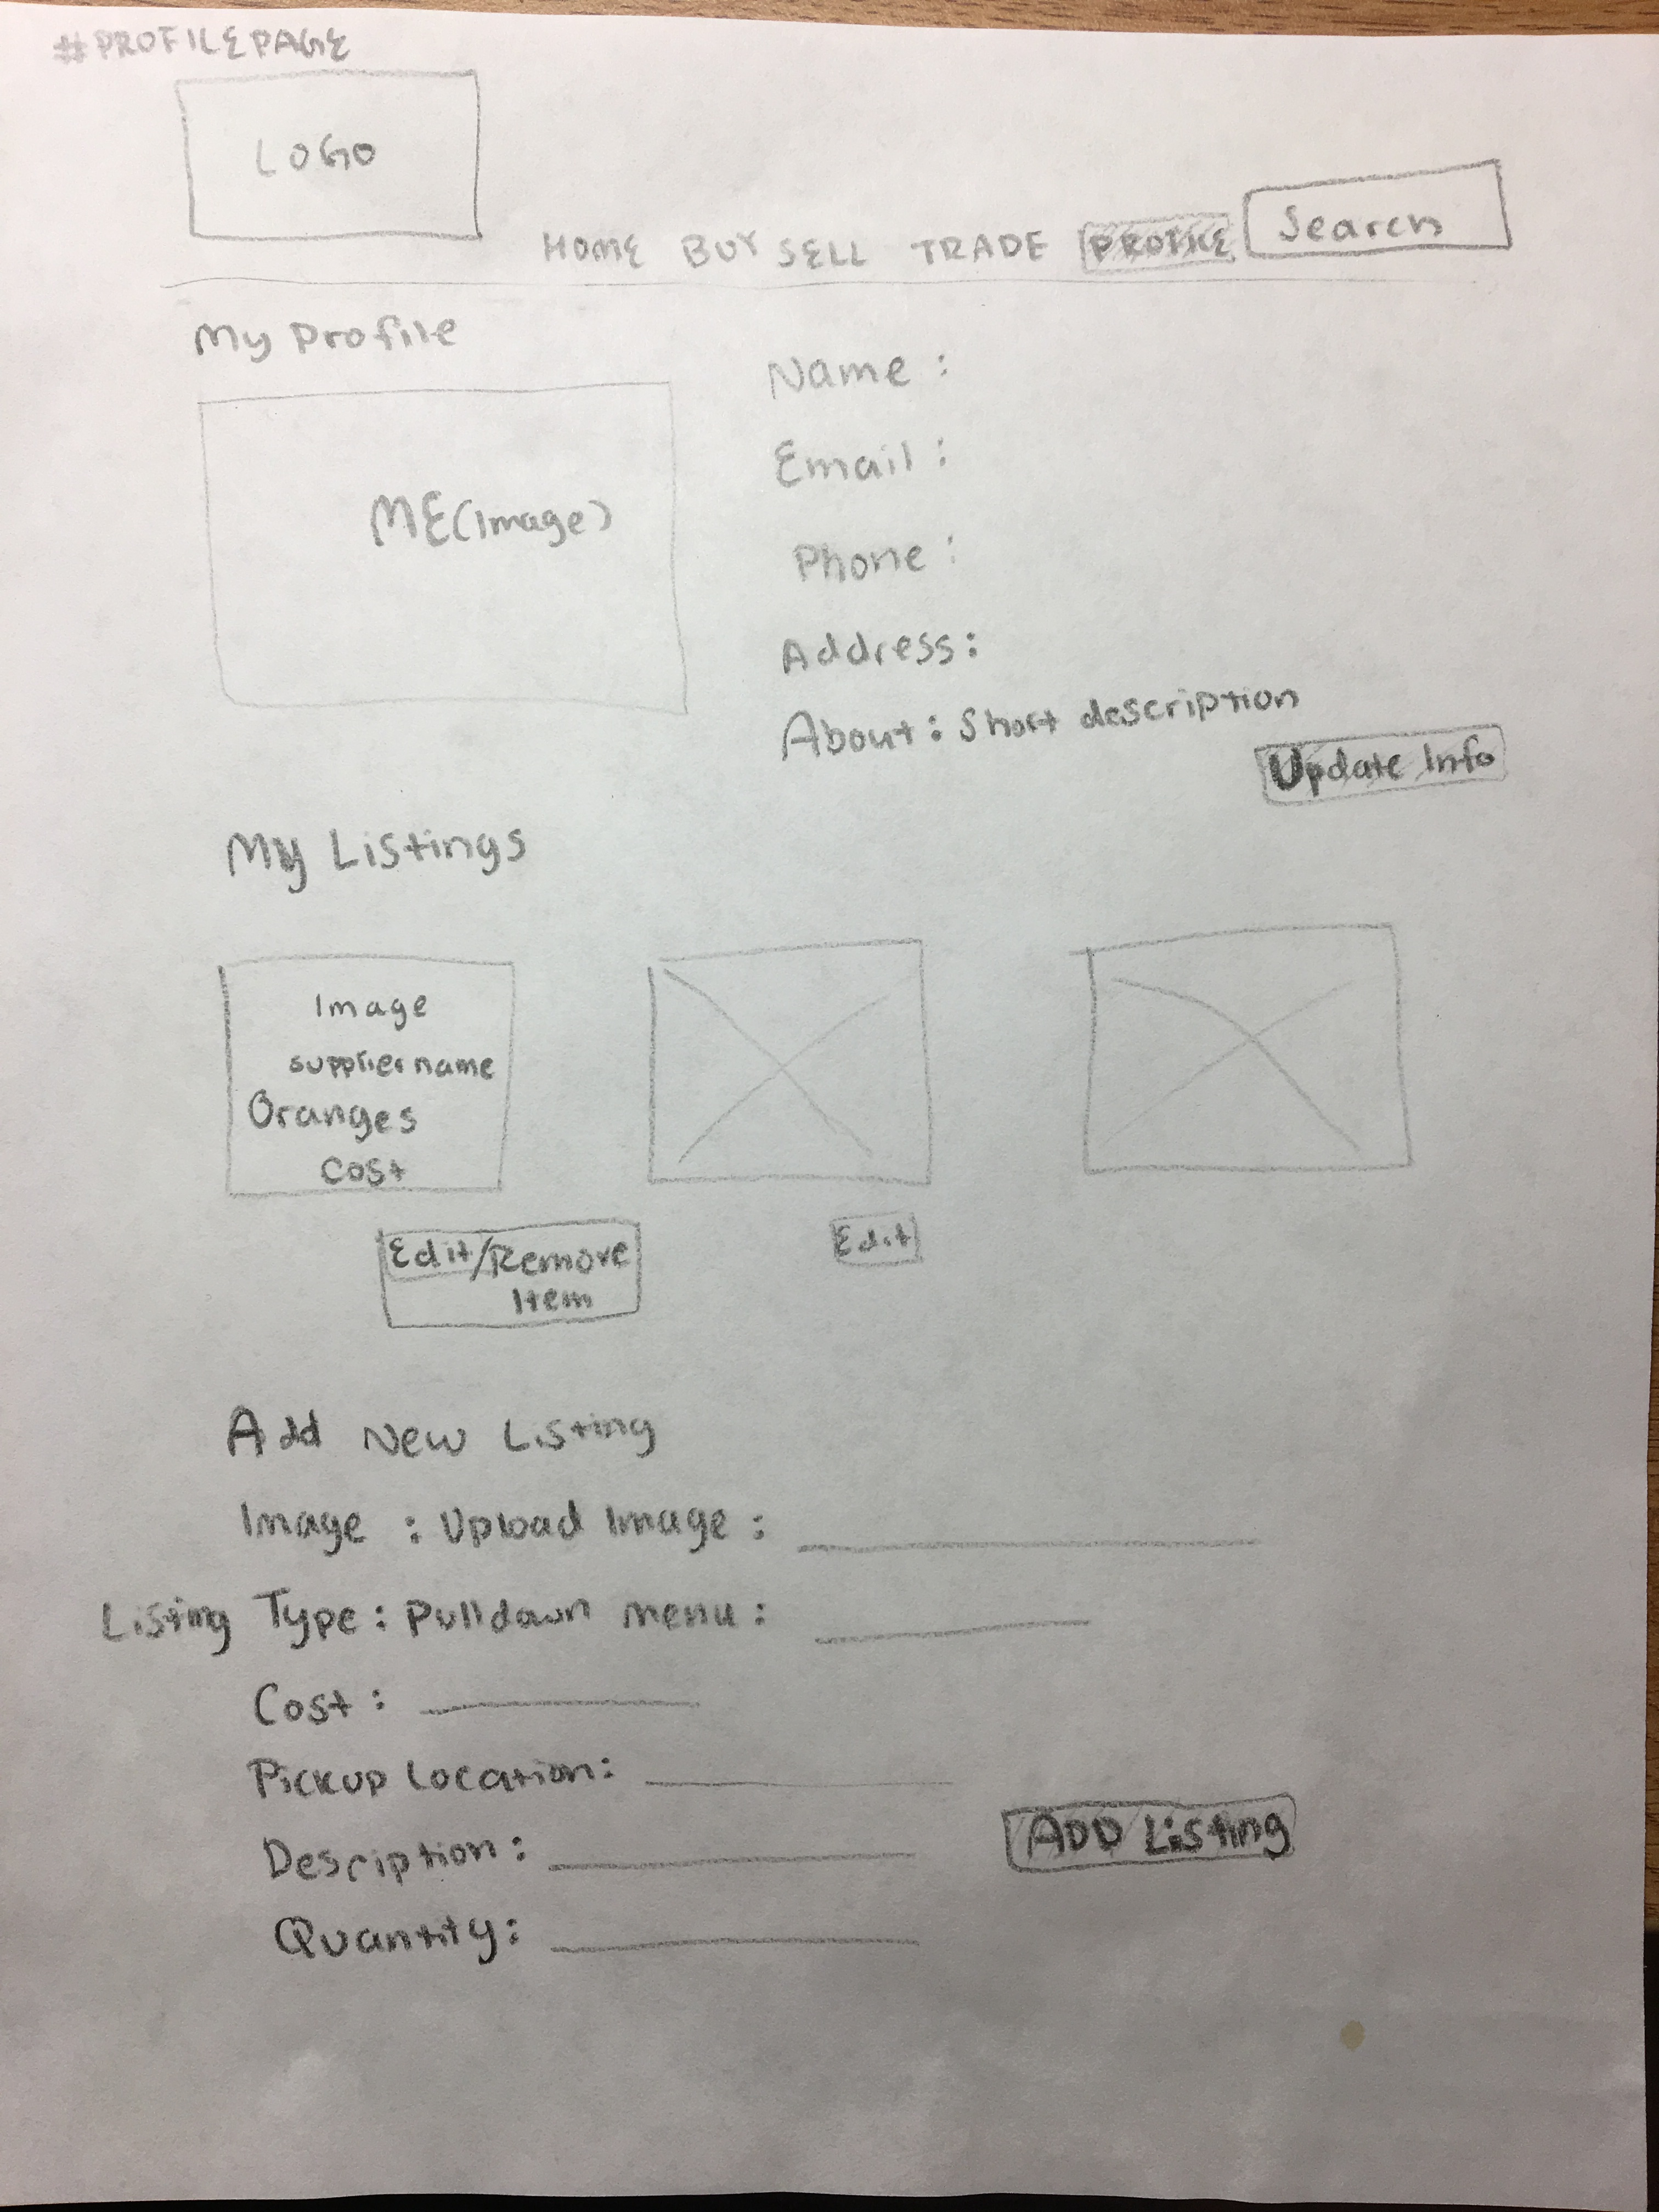 #PROFILEPAGE
LOGO
HOME BUY SELL TRADE PROFILE Search
My Profile
ME(Image)
Name :
Email :
Phone :
Address:
About: Short description
Update Info
My Listings
Image
supplier name
Oranges
Cost
Edit/Remove
Item
Edit
Add New Listing
Image : Upload Image :
Listing Type: Pulldown menu:
Cost :
Pickup Location:
Description:
ADD Listing
Quantity: